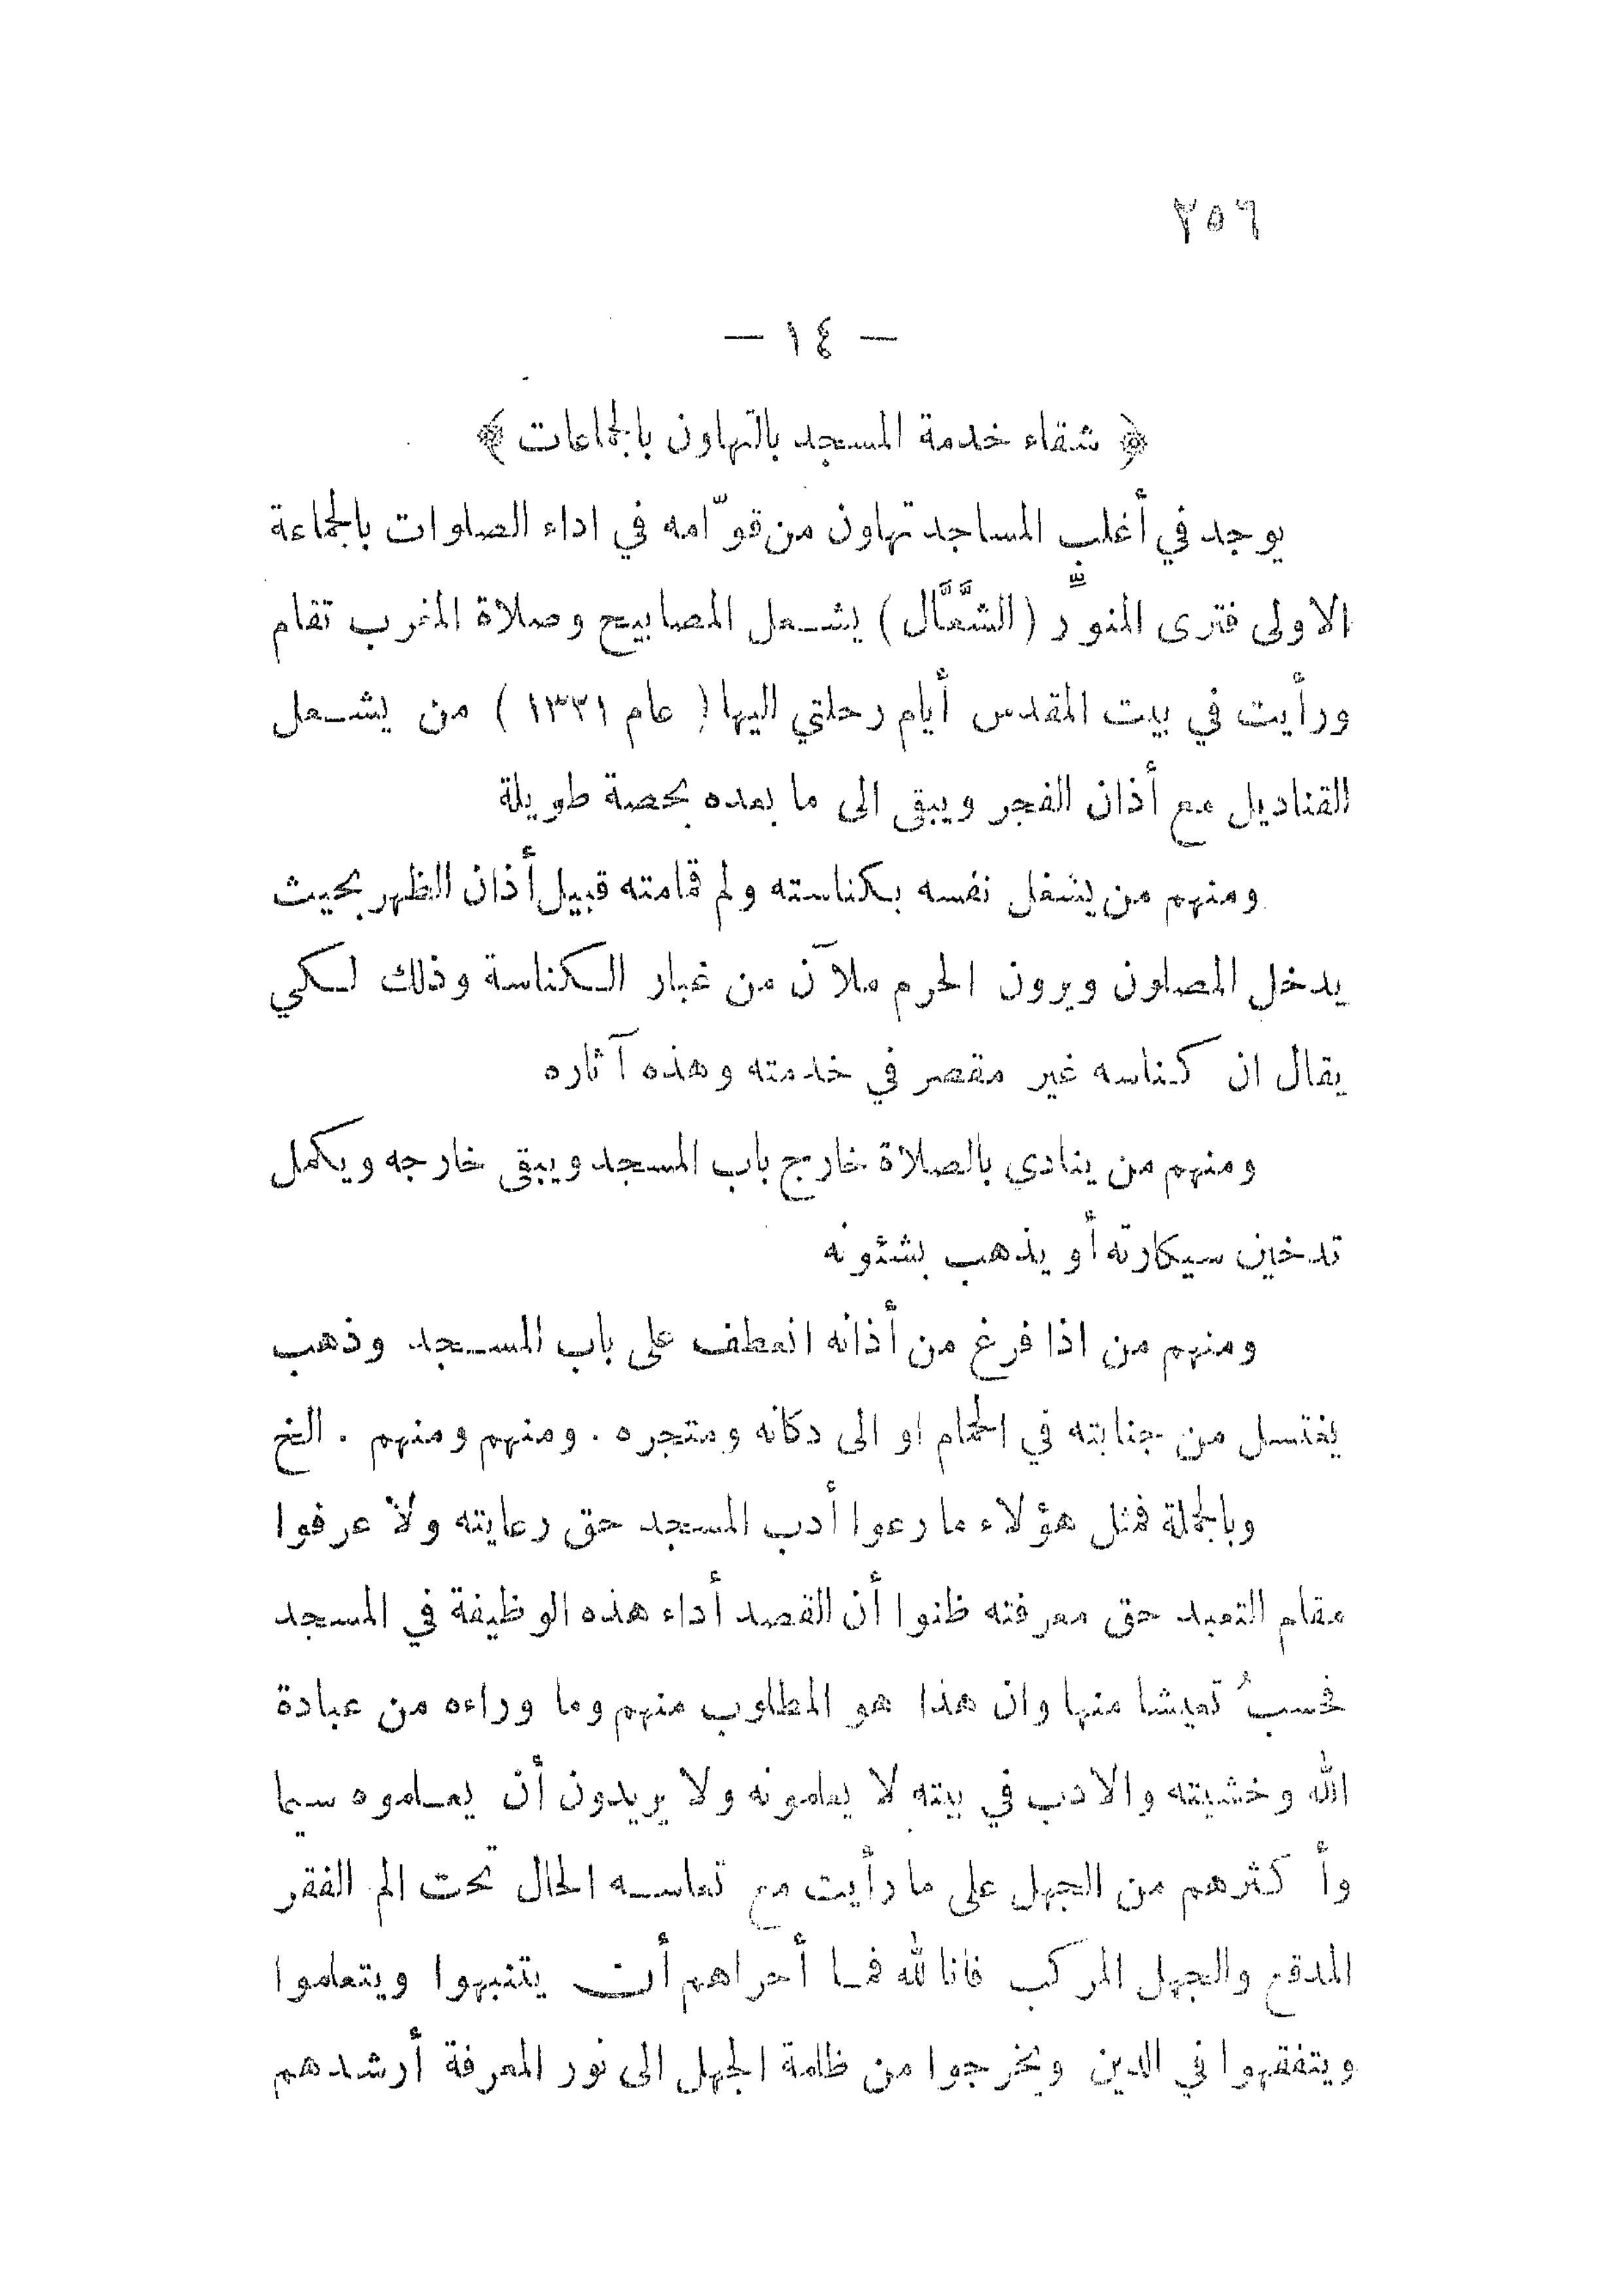 ٢٥٦
— ١٤ —
﴿ شقاء خدمة المسجد بالتهاون بالجماعات ﴾
يوجد في أغلب المساجد تهاون من قوّامه في اداء الصلوات بالجماعة
الاولى فترى المنوِّر (الشَّعَّال) يشعل المصابيح وصلاة المغرب تقام
ورأيت في بيت المقدس أيام رحلتي اليها ( عام ١٣٢١ ) من يشعل
القناديل مع أذان الفجر ويبقى الى ما بعده بحصة طويلة
ومنهم من يشغل نفسه بكناسته ولم قمامته قبيل أذان الظهر بحيث
يدخل المصلون ويرون الحرم ملآن من غبار الكناسة وذلك لكي
يقال ان كناسه غير مقصر في خدمته وهذه آثاره
ومنهم من ينادي بالصلاة خارج باب المسجد ويبقى خارجه ويكمل
تدخين سيكارته أو يذهب بشئونه
ومنهم من اذا فرغ من أذانه انعطف على باب المسجد وذهب
يغتسل من جنابته في الحمام او الى دكانه ومتجره . ومنهم ومنهم . الخ
وبالجملة فمثل هؤلاء ما رعوا أدب المسجد حق رعايته ولا عرفوا
مقام التعبد حق معرفته ظنوا أن القصد أداء هذه الوظيفة في المسجد
فحسبُ تعيشا منها وان هذا هو المطلوب منهم وما وراءه من عبادة
الله وخشيته والادب في بيته لا يعلمونه ولا يريدون أن يعلموه سيما
وأكثرهم من الجهل على ما رأيت مع تعاسه الحال تحت الم الفقر
المدقع والجهل المركب فانا لله فما أحراهم أن يتنبهوا ويتعلموا
ويتفقهوا في الدين ويخرجوا من ظلمة الجهل الى نور المعرفة أرشدهم